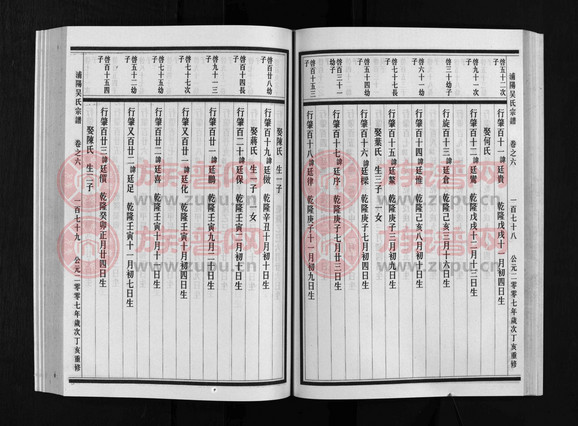 浦陽吴氏宗譜 卷之六 一百七十八 公元二零零七年歲次丁亥重修
啓五十二次子
行肇百十一諱廷貴 乾隆戊戌十一月初四日生
啓九十一次子
行肇百十二諱廷鸞 乾隆戊戌十二月初四日生
娶何氏 生一子
啓三十幼子
行旋百十三諱廷倉 乾隆己亥三月十六日生
啓六十一幼子
行肇百十四諱廷惟 乾隆己亥八月初四日生
啓七十七長子
行肇百十五諱廷鰲 乾隆庚子二月初九日生
娶葉氏 生三子 一女
啓五十四幼子
行肇百十六諱廷樑 乾隆庚子七月初六日生
啓百三十一幼子
行肇百十七諱廷序 乾隆庚子七月廿三日生
啓百十五三子
行肇百十八諱廷律 乾隆庚子十一月初九日生
娶陳氏 生一子
啓百廿八幼子
行肇百十九諱廷微 乾隆辛丑十月初十日生
娶蔣氏 生一子 一女
啓百十四長子
行肇百二十諱廷保 乾隆壬寅八月初三日生
啓九十一三子
行肇百廿一諱廷鵬 乾隆壬寅九月二十日生
啓七十七次子
行肇又百廿一諱廷化 乾隆壬寅十月初四日生
啓七十五幼子
行肇百廿二諱廷喜 乾隆壬寅十月十一日生
啓五十二幼子
行肇又百廿二諱廷足 乾隆壬寅十一月初七日生
啓百十五四子
行肇百廿三諱廷儐 乾隆癸卯正月廿四日生
娶陳氏 生二子
浦陽吴氏宗譜 卷之六 一百七十九 公元二零零七年歲次丁亥重修
族譜网
www.zupu.cn
族譜网
www.zupu.cn